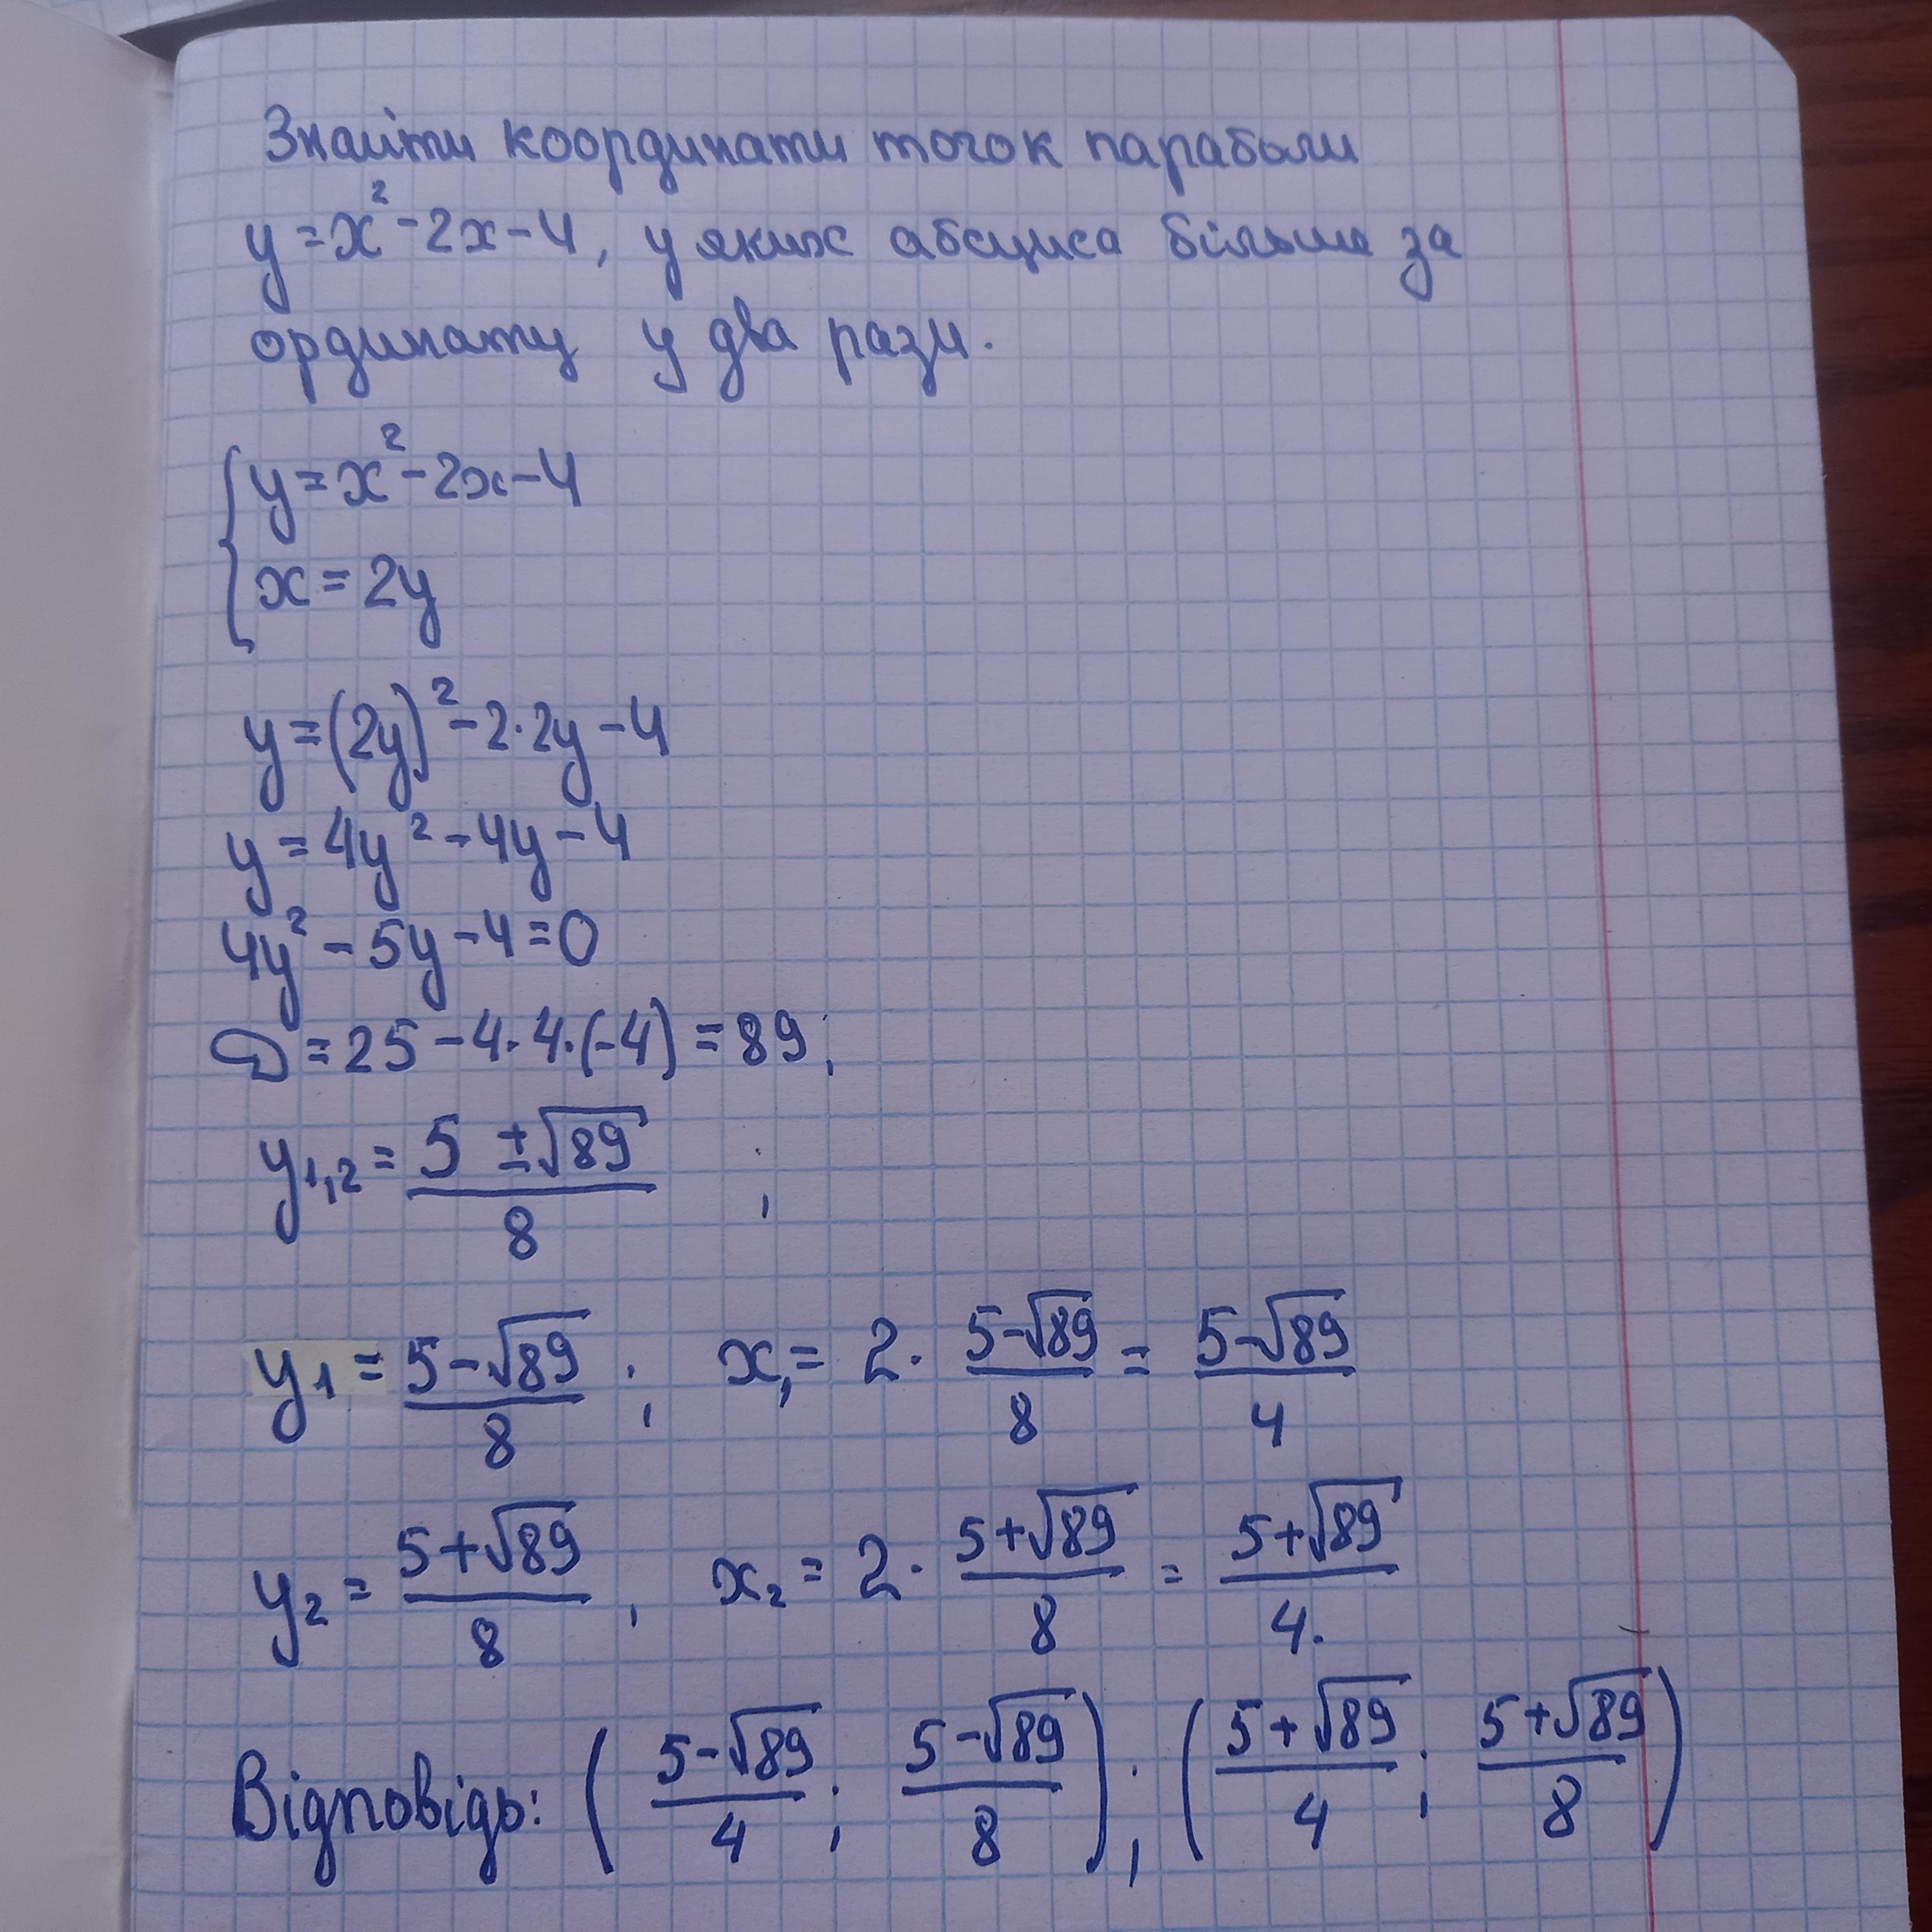 Знайти координати точок параболи
y = x² - 2x - 4, у яких абсциса більша за
ординату у два рази.
{ y = x² - 2x - 4
x = 2y
y = (2y)² - 2·2y - 4
y = 4y² - 4y - 4
4y² - 5y - 4 = 0
D = 25 - 4·4·(-4) = 89;
y₁,₂ = (5 ± √89)/8 ;
y₁ = (5 - √89)/8 ; x₁ = 2· (5 - √89)/8 = (5 - √89)/4
y₂ = (5 + √89)/8 , x₂ = 2· (5 + √89)/8 = (5 + √89)/4.
Відповідь: ( (5 - √89)/4 ; (5 - √89)/8 ) ; ( (5 + √89)/4 ; (5 + √89)/8 )